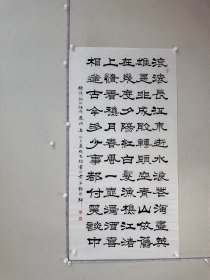 滚滚長江東逝水浪花淘盡英
雄是非成敗轉頭空青山依舊
在幾度夕陽紅白髮漁樵江渚
上慣看穐月春風一壺濁酒喜
相逢古今多少事都付笑談中